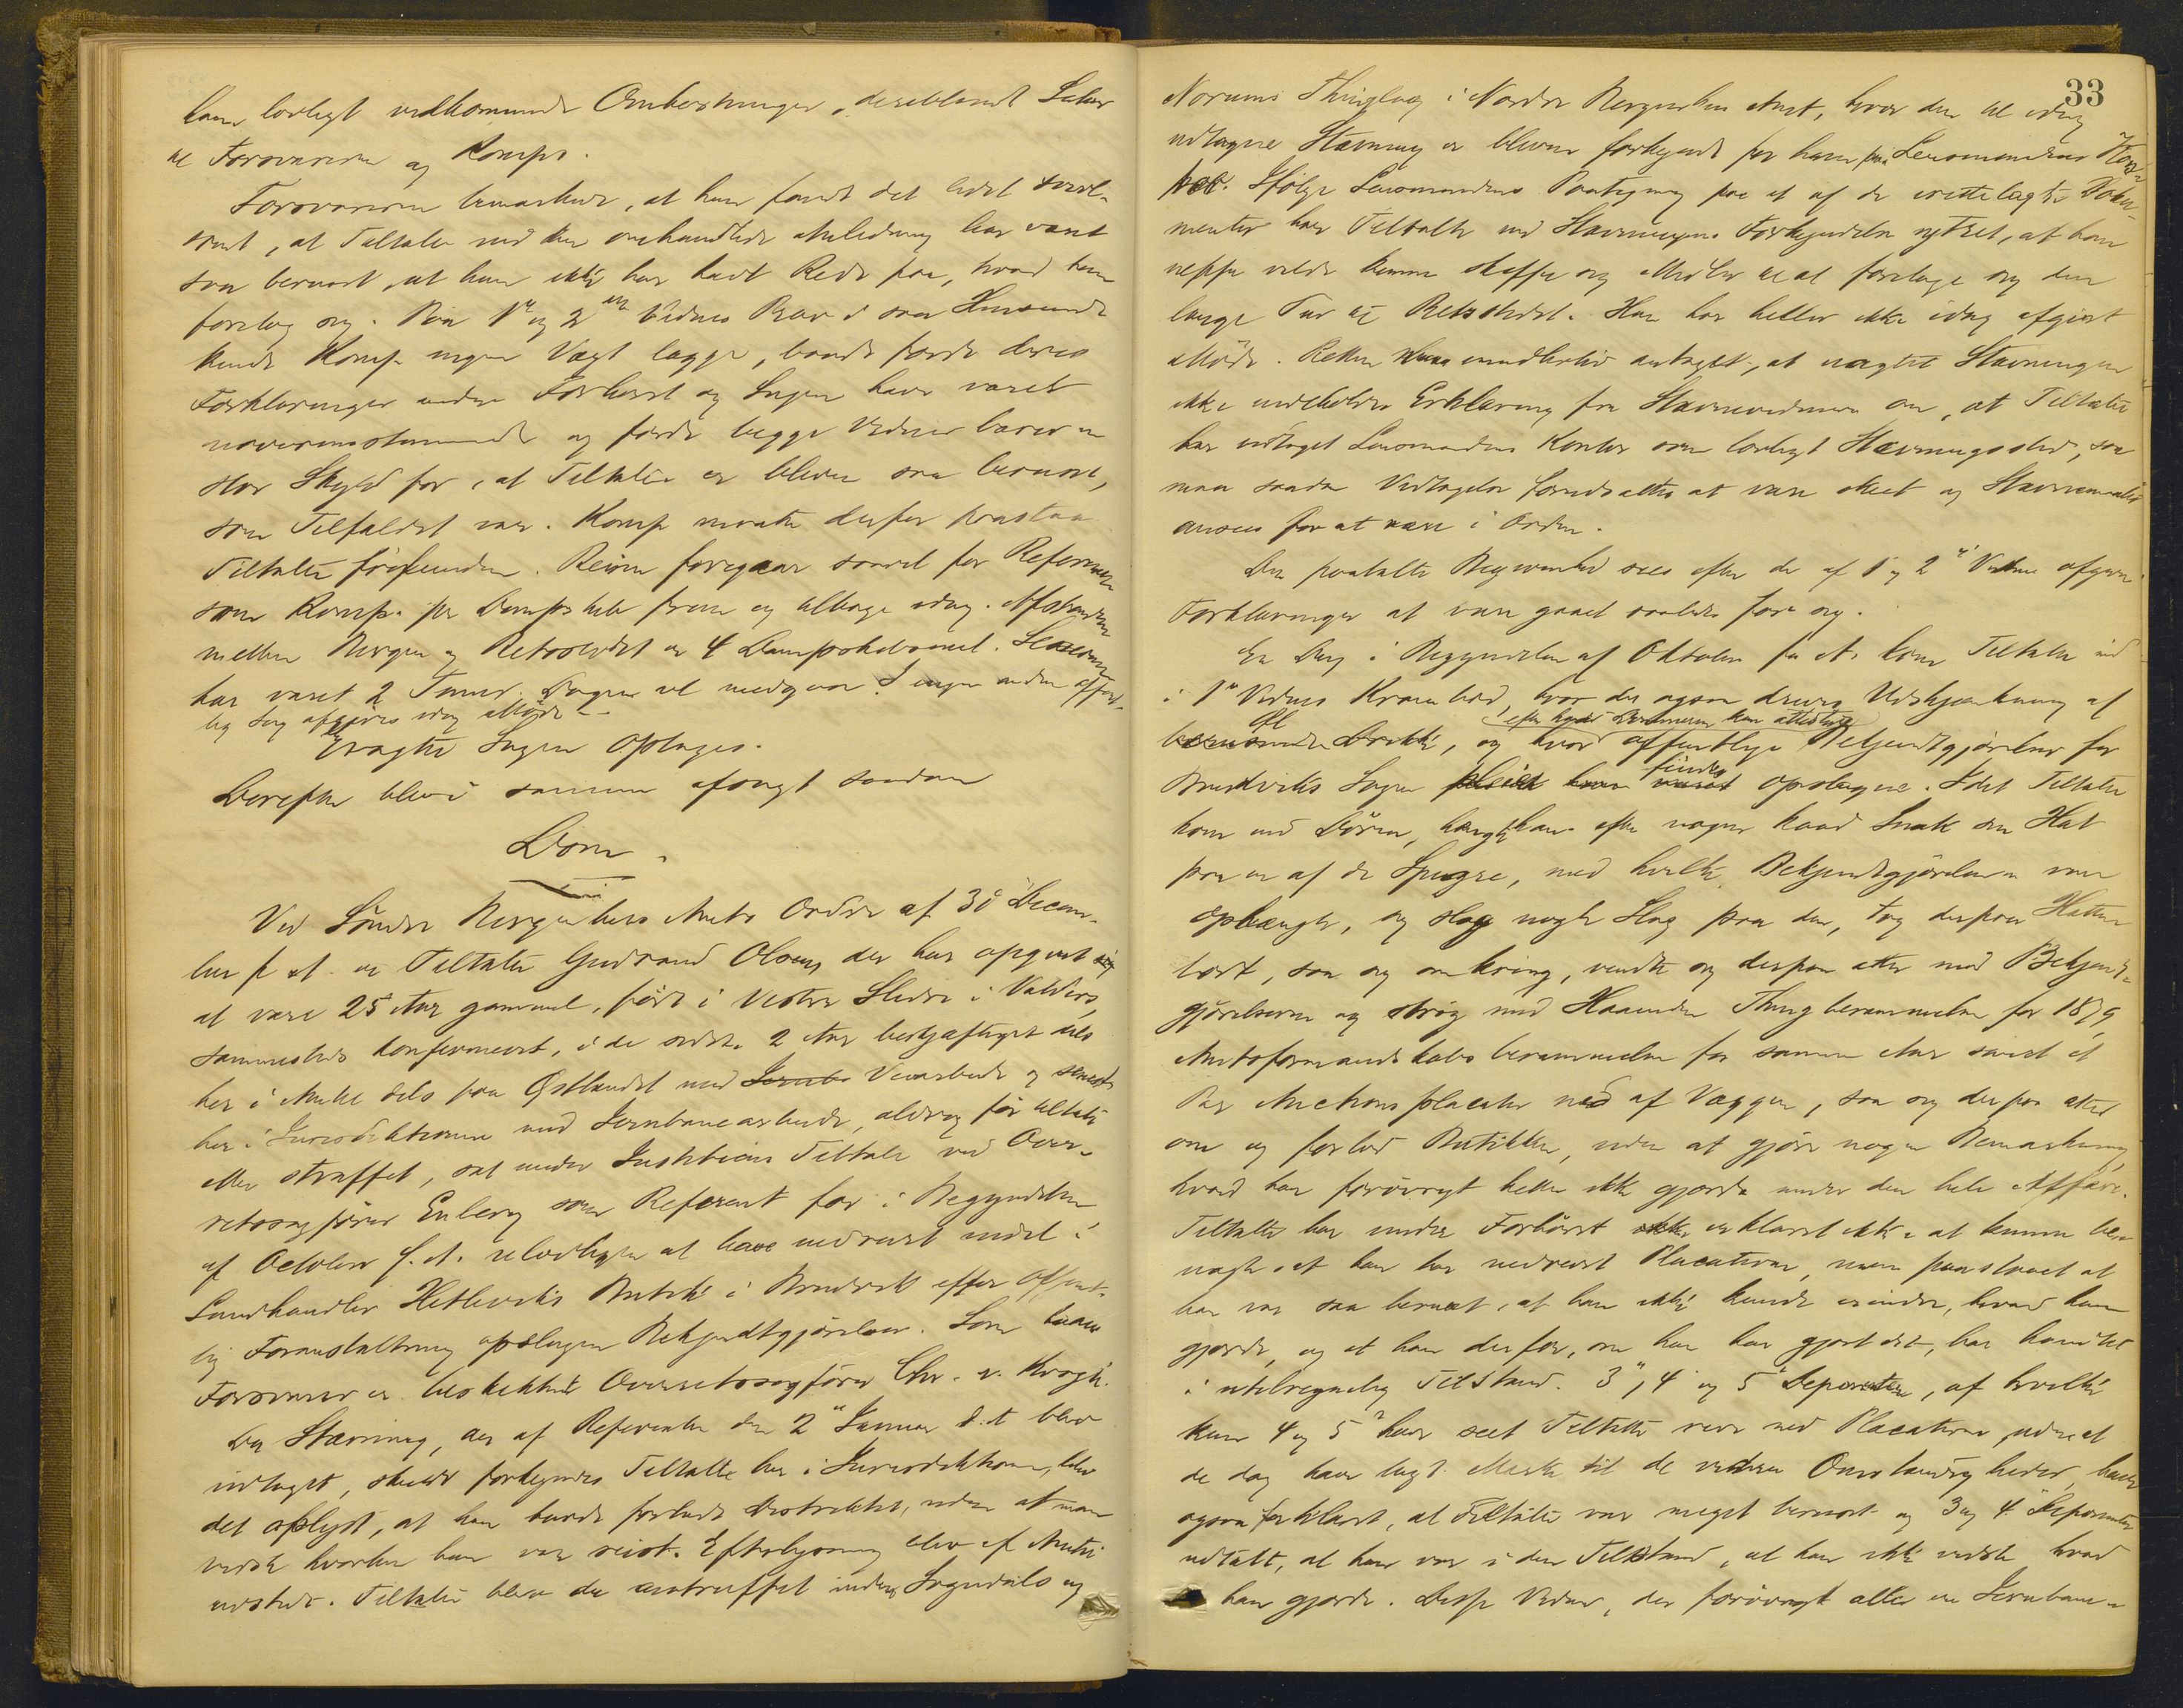 ham lovligt vedkommende Omkostninger, deriblandt Salær
til Forsvareren og Komp.
Forsvareren bemærkede, at han fandt det lidet
, at Tiltalte ved den omhandlede Anledning har været
saa beruset, at han ikke har havt Rede paa, hvad han
foretog sig. Paa 1ste og 2det Vidnes Prov i saa Henseende
kunde Komp. ingen Vægt lægge, baade fordi deres
Forklaringer under Forhøret og Sagen have været
uoverensstemmende og fordi begge Vidner bærer en
stor Skyld for, at Tiltalte er bleven saa beruset,
som Tilfældet var. Komp. maatte derfor paastaa
Tiltalte frifunden. Reisen foregaar saavel for Referenten
som Komp. pr Dampskib frem og tilbage idag. Afstanden
mellem Bergen og Retsstedet er 4 Dampskibsmil.
har varet 2 Timer. Dagen vil medgaa. I ingen anden offent-
lig Sag afgives idag Møde.
Eragtet Sagen optages.
Derefter blev i samme afsagt saadan
Dom.
Ved Søndre Bergenhus Amts Ordre af 30 Decem-
ber f. A. er Tiltalte Gudrand Olsen, der har opgivet sig
at være 25 Aar gammel, født i Vestre Slidre i Valders,
sammesteds konfirmeret, i de sidste 2 Aar beskjæftiget dels
her i Amtet dels paa Østlandet med Veiarbeide og senest
her i Jurisdiktionen med Jernbanearbeide, aldrig før tiltalt
eller straffet, sat under Justitiens Tiltale ved Over-
retssagfører Enberg som Referent for i Begyndelsen
af October f. A. ulovligen at have nedrevet endel i
Landhandler Hetleviks Butik i Bruvik efter offent-
lig Foranstaltning opslagne Bekjendtgjørelser. Som hans
Forsvarer er beskikket Overretssagfører Chr. v. Krogh.
Da Stævning, der af Referenten den 2den Januar d. A. blev
udtaget, skulde forkyndes Tiltalte her i Jurisdiktionen, blev
det oplyst, at han havde forladt Distriktet, uden at man
vidste hvorhen han var reist. Efterlysning blev af Amtet
udstedt. Tiltalte blev da antruffet inden Sogndals og
33
Norums Thinglag i Nordre Bergenhus Amt, hvor den til idag
udtagne Stævning er bleven forkyndt for ham paa Lensmandens Kon-
tor. Ifølge Lensmandens Paategning paa et af de irettelagte Doku-
menter har Tiltalte ved Stævningens Forkyndelse ytret, at han
neppe vilde kunne skaffe sig Midler til at foretage sig den
lange Tur til Retsstedet. Han har heller ikke idag afgivet
Møde. Retten imidlertid antaget, at uagtet Stævningen
ikke indeholder Erklæring fra Stævnevidnerne om, at Tiltalte
har vedtaget Lensmandens Kontor som lovligt Stævningssted, saa
maa saadan Vedtagelse forudsættes at være skeet og Stævnemaalet
ansees for at være i Orden.
Den paatalte Begivenhed sees efter de af 1 og 2det Vidne afgivne
Forklaringer at være gaaet saaledes for sig.
En Dag i Begyndelsen af Oktober f. A. kom Tiltalte ind
i 1ste Vidnes Krambod, hvor der ogsaa drives Udskjænkning af
Øl
efter hvad Dommeren kan attestere
berusende Drikke, og hvor offentlige Bekjendtgjørelser for
findes
Bruviks Sogn pleiet have været opslagne. Idet Tiltalte
kom ind Døren, hængte han efter nogen kaad Snak sin Hat
paa en af de Spigre, med hvilke Bekjendtgjørelserne vare
ophængte, og slog nogle Slag paa den, tog derpaa Hatten
bort, saa sig omkring, vendte sig derpaa atter mod Bekjendt-
gjørelserne og strøg med Haanden Thingberammelsen for 1879,
Amtsformandskabsberammelsen for samme Aar samt et
Par Auctionsplacater ned af Væggen, saa sig derpaa atter
om og forlod Butikken, uden at gjøre nogen Bemærkning,
hvad han forøvrigt heller ikke gjorde under den hele Affære.
Tiltalte har under Forhøret erklæret ikke at kunne be-
nægte, at han har nedrevet Placaterne, men paastaaet at
han var saa beruset, at han ikke kunde erindre, hvad han
gjorde, og at han derfor, om han har gjort det, har handlet
i utilregnelig Tilstand. 3die, 4de og 5te Deponenter, af hvilke
kun 4 og 5te have seet Tiltalte rive ned Placaterne, uden at
de dog have lagt Mærke til de videre Omstændigheder, have
ogsaa forklaret, at Tiltalte var meget beruset og 3 og 4 Deponenter
udtalt, at han var i den Tilstand, at han ikke vidste hvad
han gjorde. Disse Vidner, der forøvrigt alle ere Jernbane-